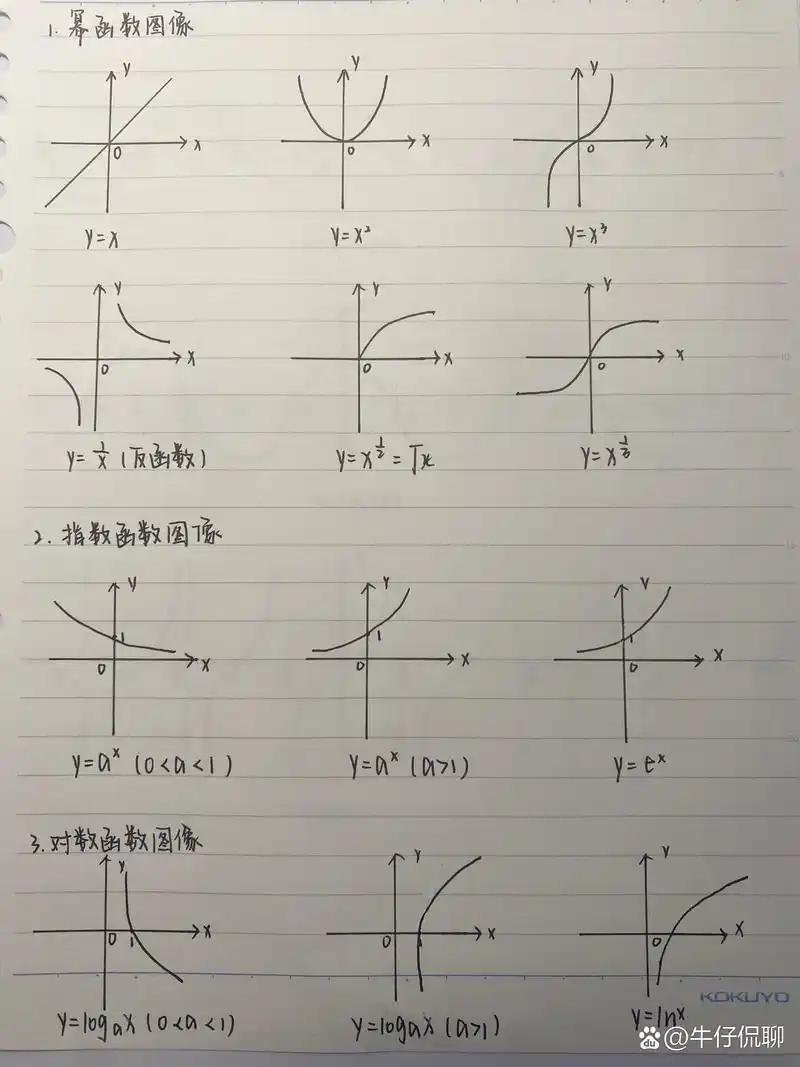 1. 幂函数图像
y y y
0 x 0 x 0 x
y=x y=x² y=x³
y y y
0 x 0 x 0 x
y=1/x (反函数) y=x^½=√x y=x^⅓
2. 指数函数图像
y y y
1 1 1
0 x 0 x 0 x
y=aˣ (0<a<1) y=aˣ (a>1) y=eˣ
3. 对数函数图像
y y y
0 1 x 0 1 x 0 x
KOKUYO
y=logₐx (0<a<1) y=logₐx (a>1) y=lnˣ
Bai du @牛仔侃聊